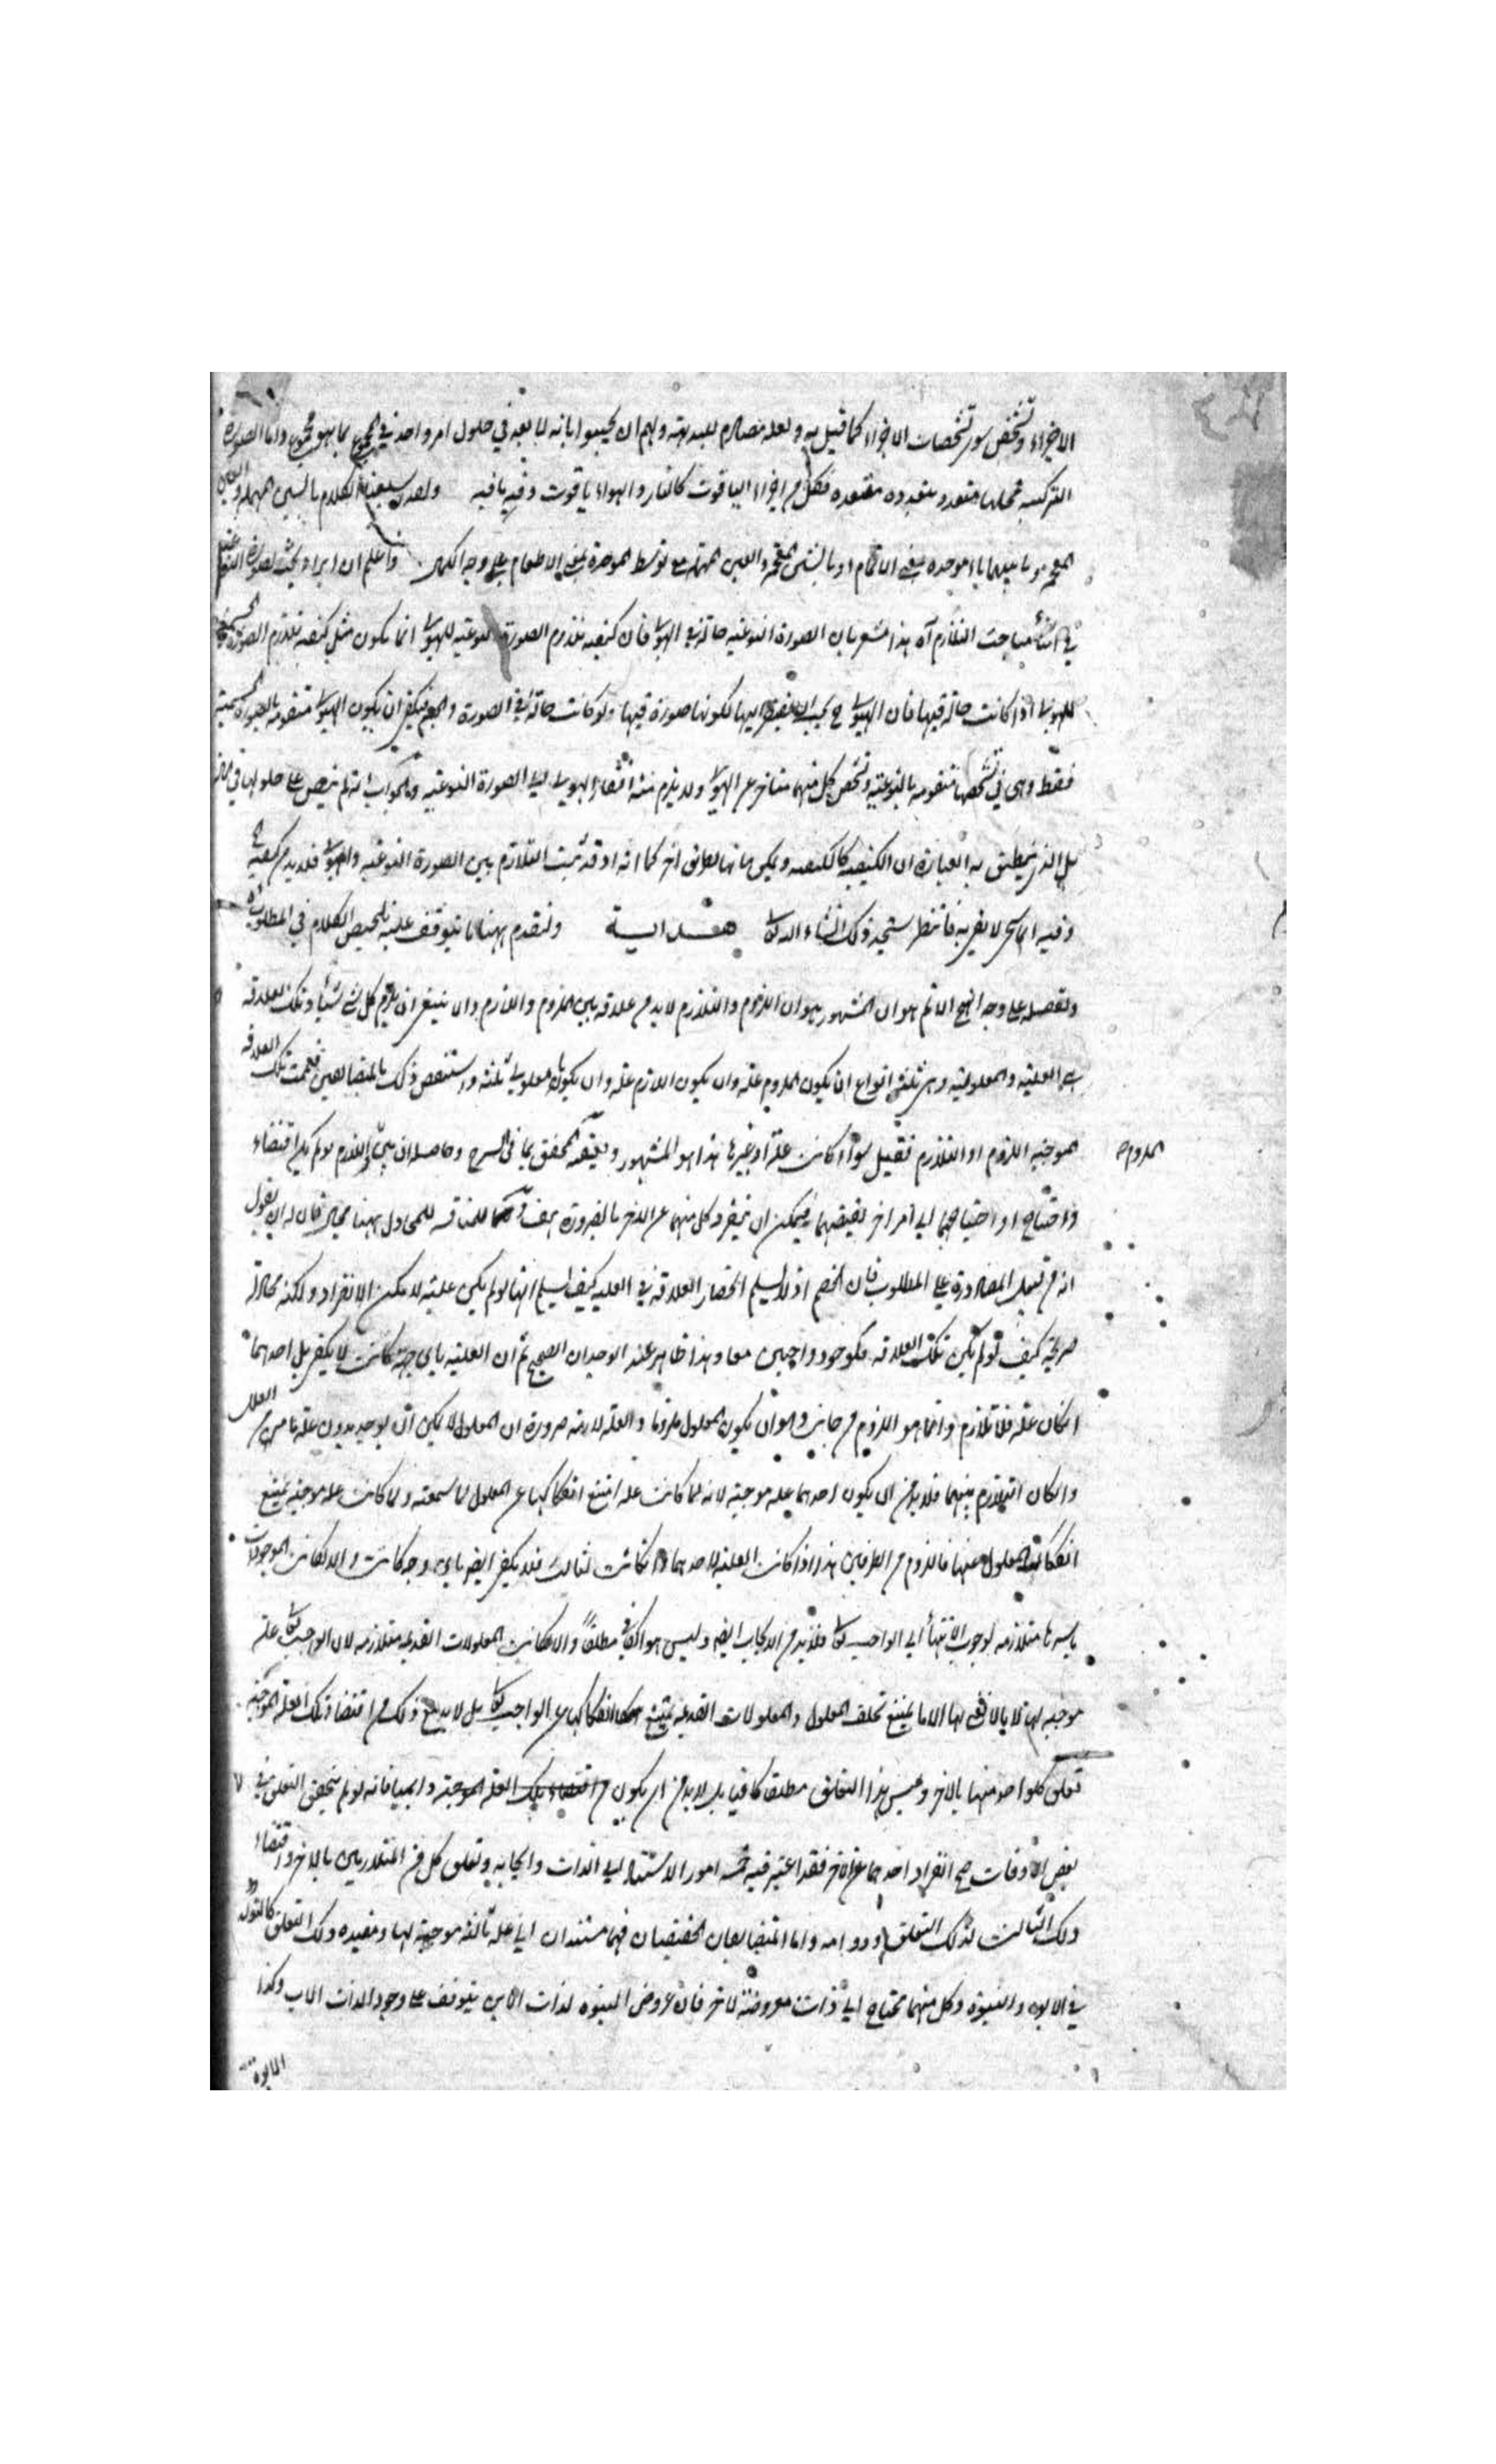 الاجزاء وتشخص سور تشخصات الاجزاء كما قيل به ولعله مصادم للبديهة ولهم ان يجيبوا بانه لا بعد في حلول امر واحد في المجموع بما هو مجموع واما الصورة
التركيبية فمحلها متعدد متعددة فكل من اجزاء الياقوت كالنار والهواء ياقوت وفيه ما فيه الكلام بالسين المهملة والغين
المعجمة وما بينهما باء موحدة بمعنى الاتمام او بالشين المعجمة والعين المهملة مع توسط الموحدة بمعنى الاطعام على وجه الكمال واعلم ان ايراد بحث الصورة النوعية
في اثناء مباحث التلازم آه هذا مشعر بان الصورة النوعية حالة في الهيولى فان كيفية تلازم الصورة النوعية للهيولى انما يكون مثل كيفية تلازم الصورة الجسمية
للهيولى اذا كانت حالة فيها فان الهيولى ح يجب ان يفتقر اليها لكونها صورة فيها ولو كانت حالة في الصورة والجسم فيكفي ان يكون الهيولى متقومة بالصورة الجسمية
فقط وهي في تشخصها متقومة بالنوعية وتشخص كل منهما متاخر عن الهيولى ولا يلزم منه افتقار الهيولى الى الصورة النوعية والجواب انه لم ينص على حلولها في
بل الذي ينطبق به العبارة ان الكيفية كالكيفية ويمكن بيانها بطريق اخر كما انه اذ قد ثبت التلازم بين الصورة النوعية والهيولى فلا بد من كيفية
وفيه فانتظر ستجد ذلك انشاء الله تعالى هداية ولنقدم ههنا ما يتوقف عليه تلخيص الكلام في المطلوب
وتفصيله على وجه النهج الاتم هو ان المشهور هو ان اللزوم والتلازم لا بد من علاقة بين الملزوم واللازم والا ينبغي ان يلزم كل شئ شيئا وتلك العلاقة
هي العلية والمعلولية وهي ثلثة انواع ان يكون الملزوم علة وان يكون اللازم علة وان يكونا معلولي ثالثة واستنقض ذلك بالمتضايفين فعممت تلك العلاقة
الموجبة اللزوم او التلازم فقيل سواء كانت علة او غيرها هذا هو المشهور المحقق بما في الشرح وحاصله ان بين اللازم لو لم يكن اقتضاء
الملزوم
واحتياج او احتياجهما الى امر اخر يقتضيهما فيمكن ان ينفرد كل منهما عن الاخر بالضرورة للمجادل ههنا مجال فان له ان يقول
انه من قبيل المصادرة على المطلوب فان الخصم اذ لا يسلم انحصار العلاقة في العلية كيف يسلم انها لو لم يكن علية لا مكن الانفراد ولكنه مجادلة
صريحة كيف لو لم يكن تلك العلاقة فكوجود واجبين معا وهذا ظاهر عند الوجدان الصحيح ثم ان العلية باي جهة كانت لا يكفي بل احدهما
ان كان علة فلا تلازم وانما هو اللزوم من جانب وهو ان يكون المعلول ملزوما والعلة لازمة ضرورة ان المعلول لا يمكن ان يوجد بدون علة ما من العلل
وان كان التلازم بينهما فلا بد من ان يكون احدهما علة موجبة لانه لما كانت علة امتنع انفكاكها عن المعلول لما سمعته ولما كانت علة موجبة يمتنع
انفكاك المعلول عنها فاللزوم من الطرفين هذا اذا كانت العلية لاحدهما واذا كانت لثالث فلا يكفي ايضا باي وجه كانت والا لكانت الموجودات
باسرها متلازمة لوجوب الانتهاء الى الواجب تعالى فلا بد من الايجاب ايضا وليس هو كافيا مطلقا والا لكانت المعلولات القديمة متلازمة لان الواجب تعالى علة
موجبة لها الا ما يمتنع تخلف المعلول والمعلولات القديمة يمتنع انفكاكها عن الواجب تعالى بل لا بد مع ذلك من اقتضاء تلك العلة الموجبة
تعلق كل واحد منهما بالاخر وليس هذا التعلق مطلقا كافيا بل لا بد من ان يكون من اقتضاء تلك العلة الموجبة دايميا فانه لو لم يتحقق التعلق في
بعض الاوقات صح انفراد احدهما عن الاخر فقد اعتبر فيه خمسة امور الاستناد الى الذات وايجابه وتعلق كل من المتلازمين بالاخر واقتضاء
ذلك الثالث لذلك التعلق ودوامه واما المتضايفان الحقيقيان فهما مستندان الى علة ثالثة موجبة لها ومفيدة ذلك التعلق كالتولد
في الابوة والبنوة وكل منهما محتاج الى ذات معروضة لاخر فان عروض البنوة لذات الابن يتوقف على وجود الذات الاب وكذا
الابوة